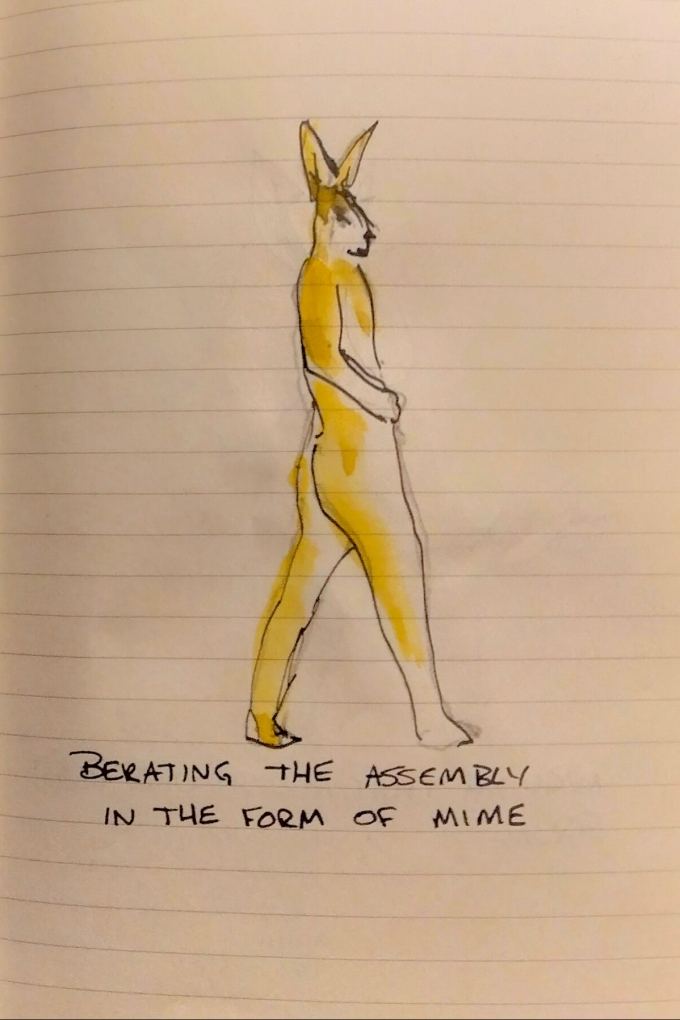 BERATING THE ASSEMBLY
IN THE FORM OF MIME